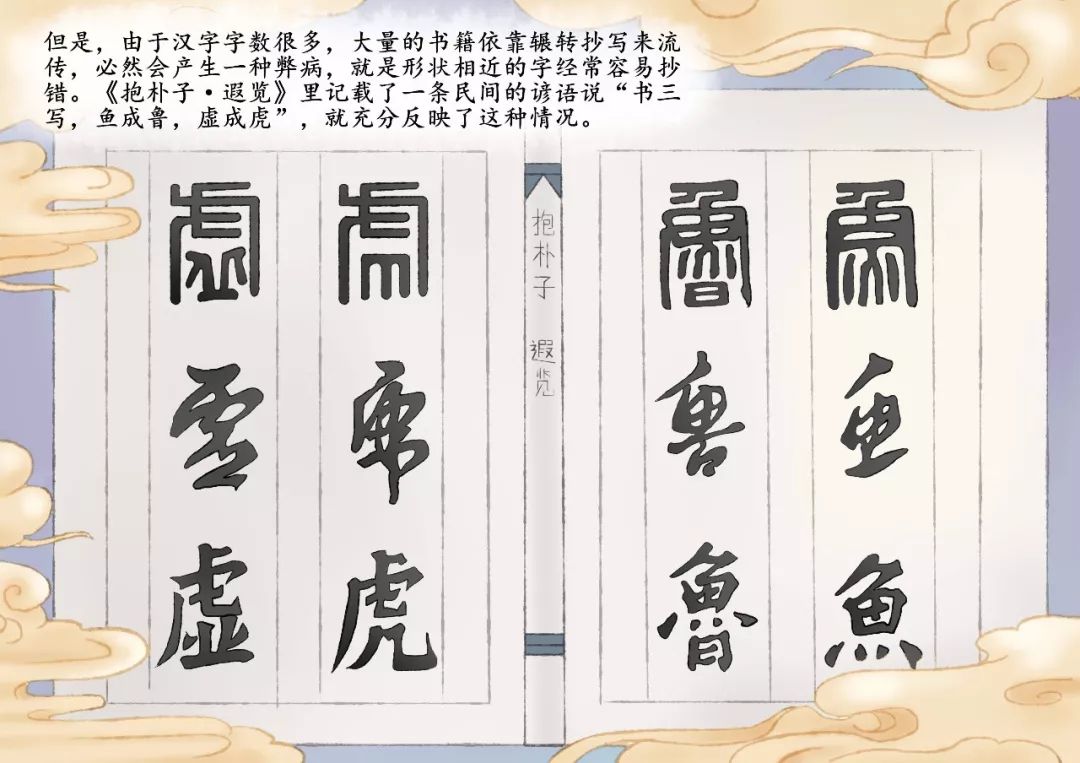 但是，由于汉字字数很多，大量的书籍依靠辗转抄写来流
传，必然会产生一种弊病，就是形状相近的字经常容易抄
错。《抱朴子·遐览》里记载了一条民间的谚语说“书三
写，鱼成鲁，虚成虎”，就充分反映了这种情况。
魚
魚
魚
魯
魯
魯
抱朴子 遐览
虎
虎
虎
虛
虛
虚